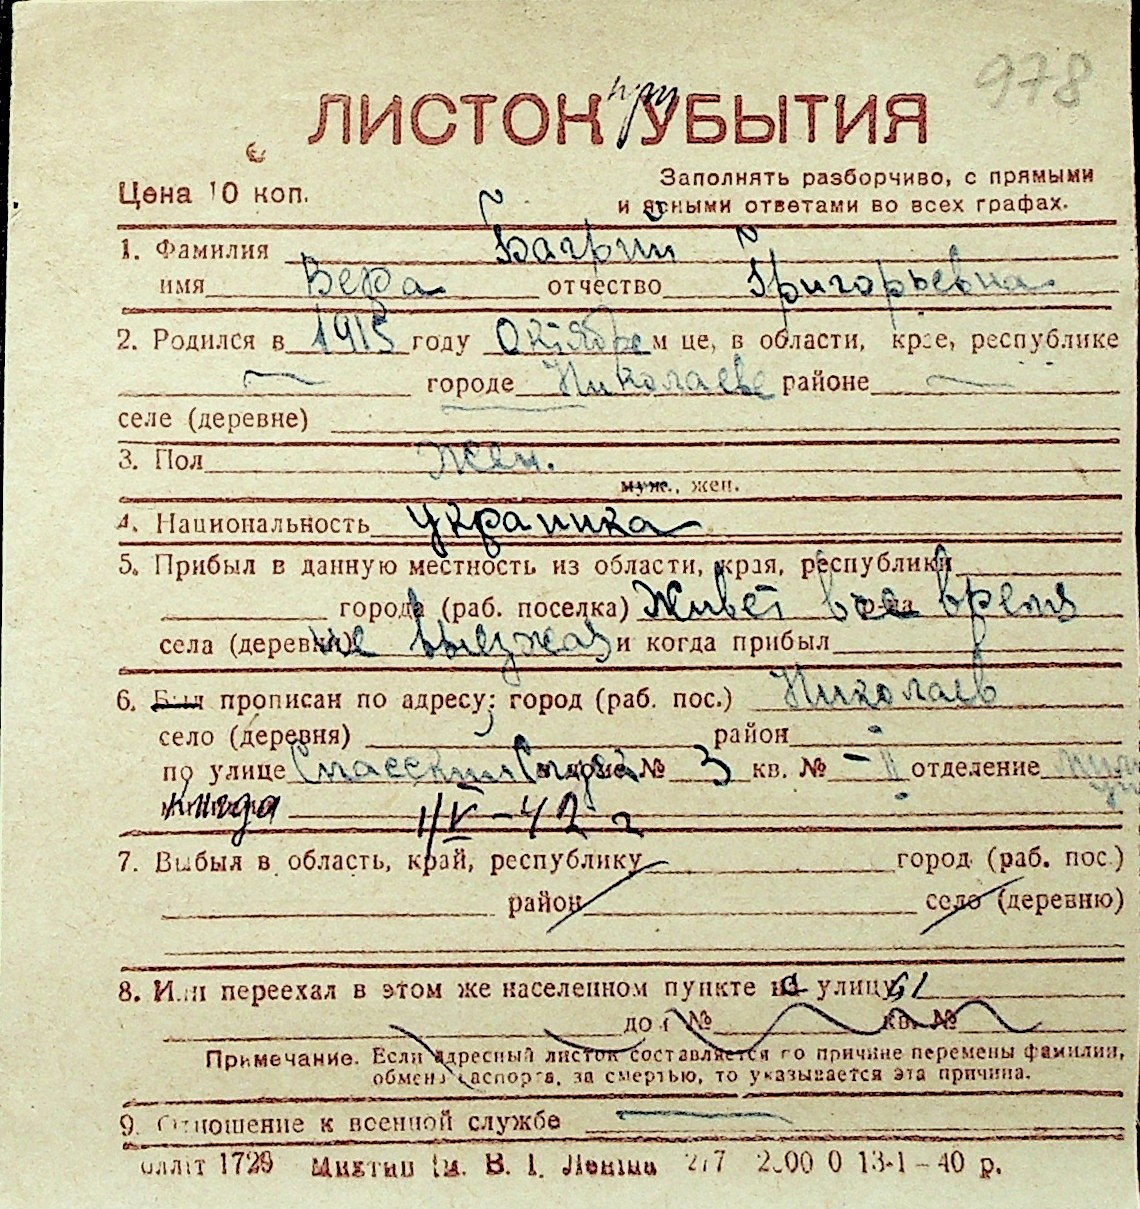 978
ЛИСТОК при УБЫТИЯ
Цена 10 коп.
Заполнять разборчиво, с прямыми
и ясными ответами во всех графах.
1. Фамилия Багрий
имя Вера отчество Григорьевна
2. Родился в 1915 году Октябре м це, в области, крае, республике
городе Николаеве районе
селе (деревне)
3. Пол Жен.
муж., жен.
4. Национальность украинка
5. Прибыл в данную местность из области, края, республики
города (раб. поселка) Живет все р-на время
села (деревни) не выезжая и когда прибыл
6. Был прописан по адресу: город (раб. пос.) Николаев
село (деревня) район
по улице Спасский дом № 3 кв. № – II отделение
когда 1/V – 42 г
7. Выбыл в область, край, республику город (раб. пос.)
район село (деревню)
8. Или переехал в этом же населенном пункте на улицу
дом № кв. №
Примечание. Если адресный листок составляется по причине перемены фамилии,
обмена паспорта, за смертью, то указывается эта причина.
9. Отношение к военной службе
1729 В. І. Леніна 217 13-1–40 р.